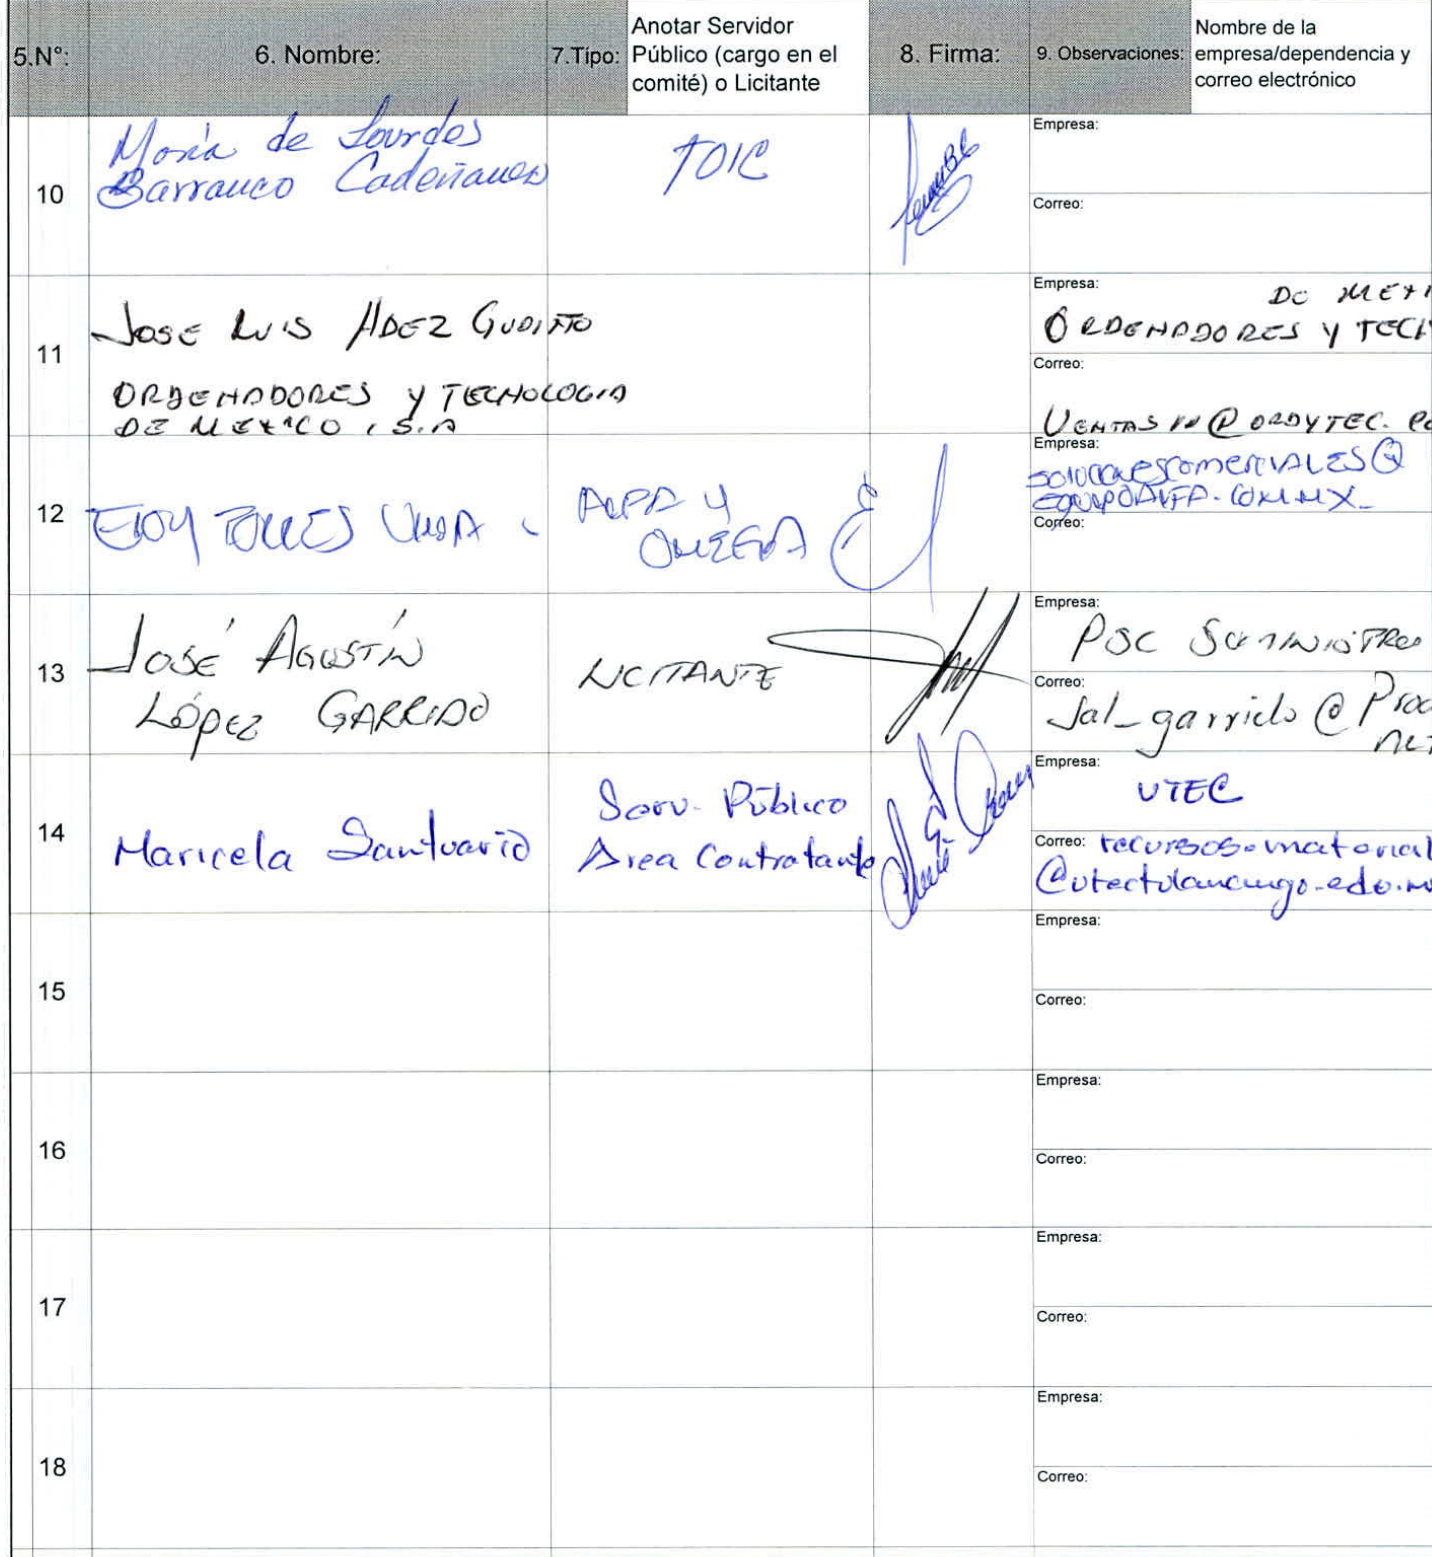 5.N°: 6. Nombre: 7.Tipo: Anotar Servidor Público (cargo en el comité) o Licitante 8. Firma: 9. Observaciones: Nombre de la empresa/dependencia y correo electrónico
10
María de Lourdes
Barranco
TOIC
Empresa:
Correo:
11
JOSE LUIS HDEZ GUDIÑO
ORDENADORES Y TECNOLOGIA
DE MEXICO, S.A
Empresa:
DE MEXI
ORDENADORES Y TECN
Correo:
VENTAS @ ORDYTEC.
12
ELOY TORRES
ALFA Y
OMEGA
Empresa:
SOLUCIONESCOMERCIALES@
EQUIPOALFA.COM.MX
Correo:
13
JOSÉ AGUSTÍN
LÓPEZ GARRIDO
LICITANTE
Empresa:
PSC SUMINISTRO
Correo:
Jal_garrido @
14
Maricela Santuario
Serv. Público
Area Contratante
Empresa:
UTEC
Correo: recursos.material
@utectulancingo.edu.m
15
Empresa:
Correo:
16
Empresa:
Correo:
17
Empresa:
Correo:
18
Empresa:
Correo: